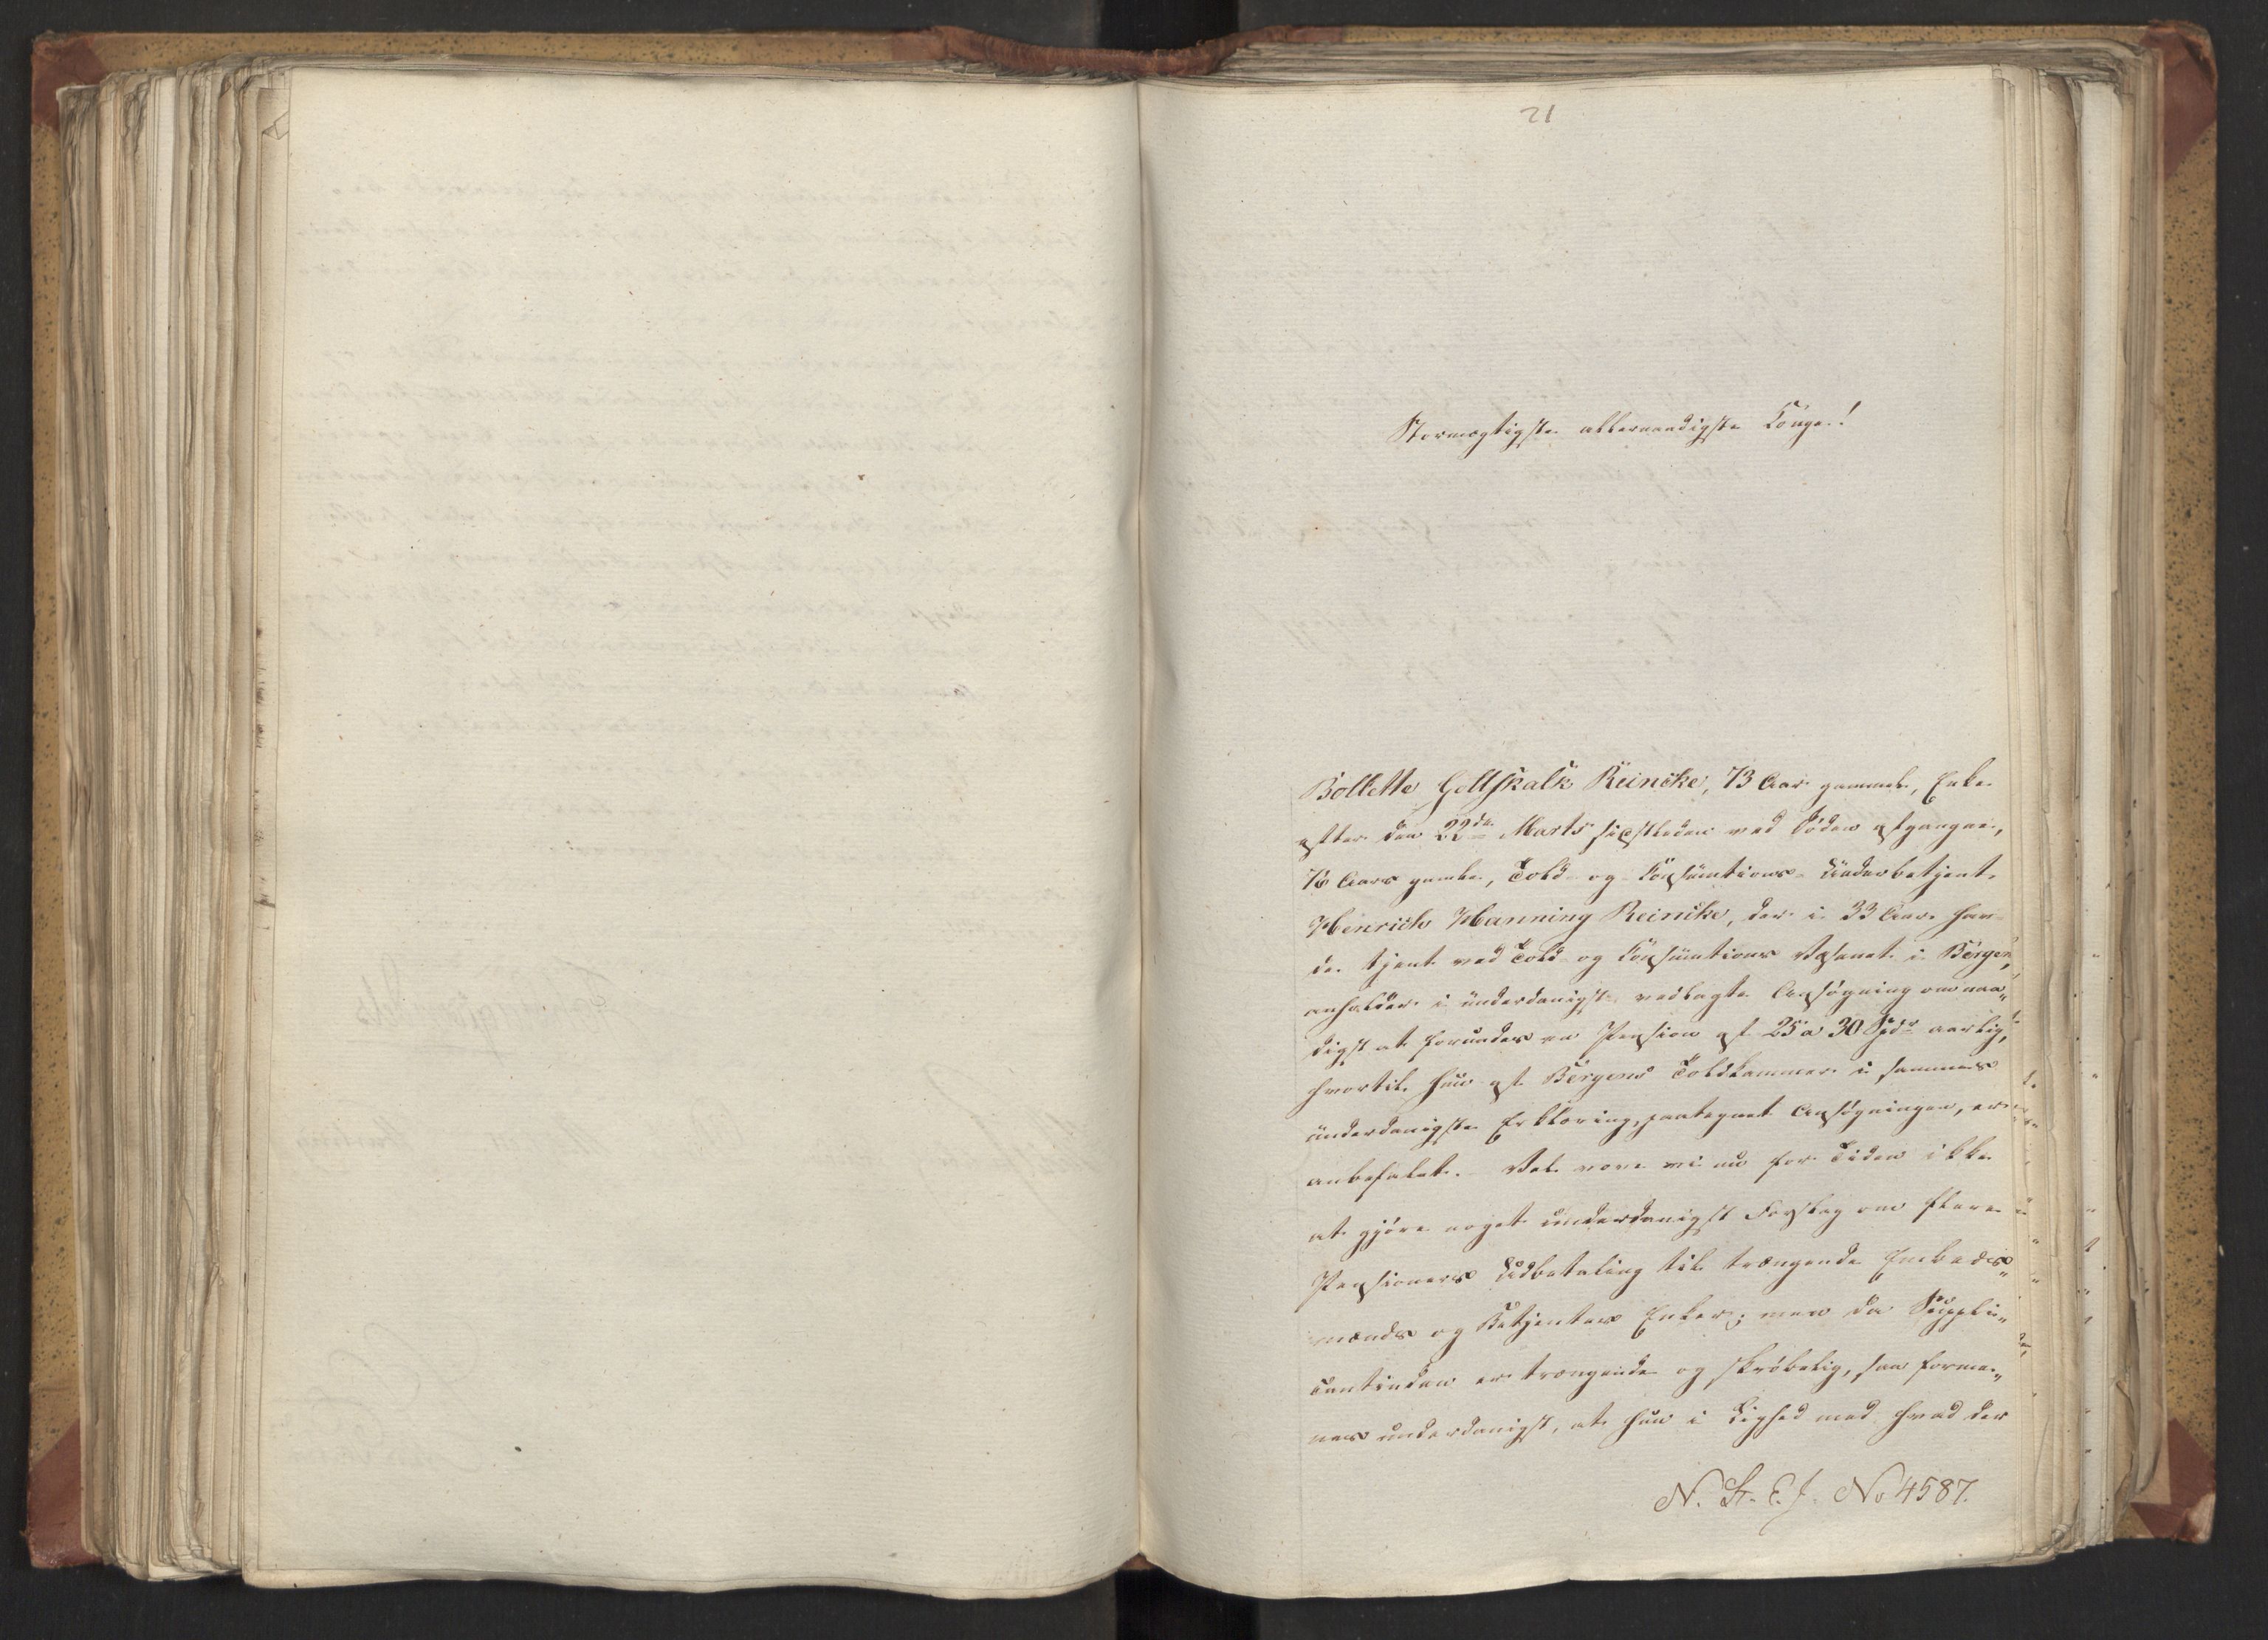 21
Stormægtigste allernaadigste Konge!
Bollette Gottskalk Reincke, 73 Aar gammel, Enke
efter den 22de Marts sidstleden ved Döden afgangne,
76 Aars gamle, Told- og Consumtions- Underbetjent
Henrich Hanning Reincke, der i 33 Aar hav-
de tjent ved Told- og Consumtions Væsenet i Bergen,
anholder i underdanigst vedlagte Ansögning om naa„
digst at forundes en Pension af 25 a 30 Spdr aarlig,
hvortil hun af Bergens Toldkammer i sammes
underdanigste Erklæring, paategnet Ansögningen, er
anbefalet. Vel vove vi nu for Tiden ikke
at gjöre noget underdanigst Forslag om flere
Pensioners Udbetaling til trængende Embeds„
mænds og Betjentes Enker; men da Suppli„
cantinden er trængende og skröbelig, saa forme„
nes underdanigst, at hun i Lighed med hvad der
N. St. E. J. No 4587.